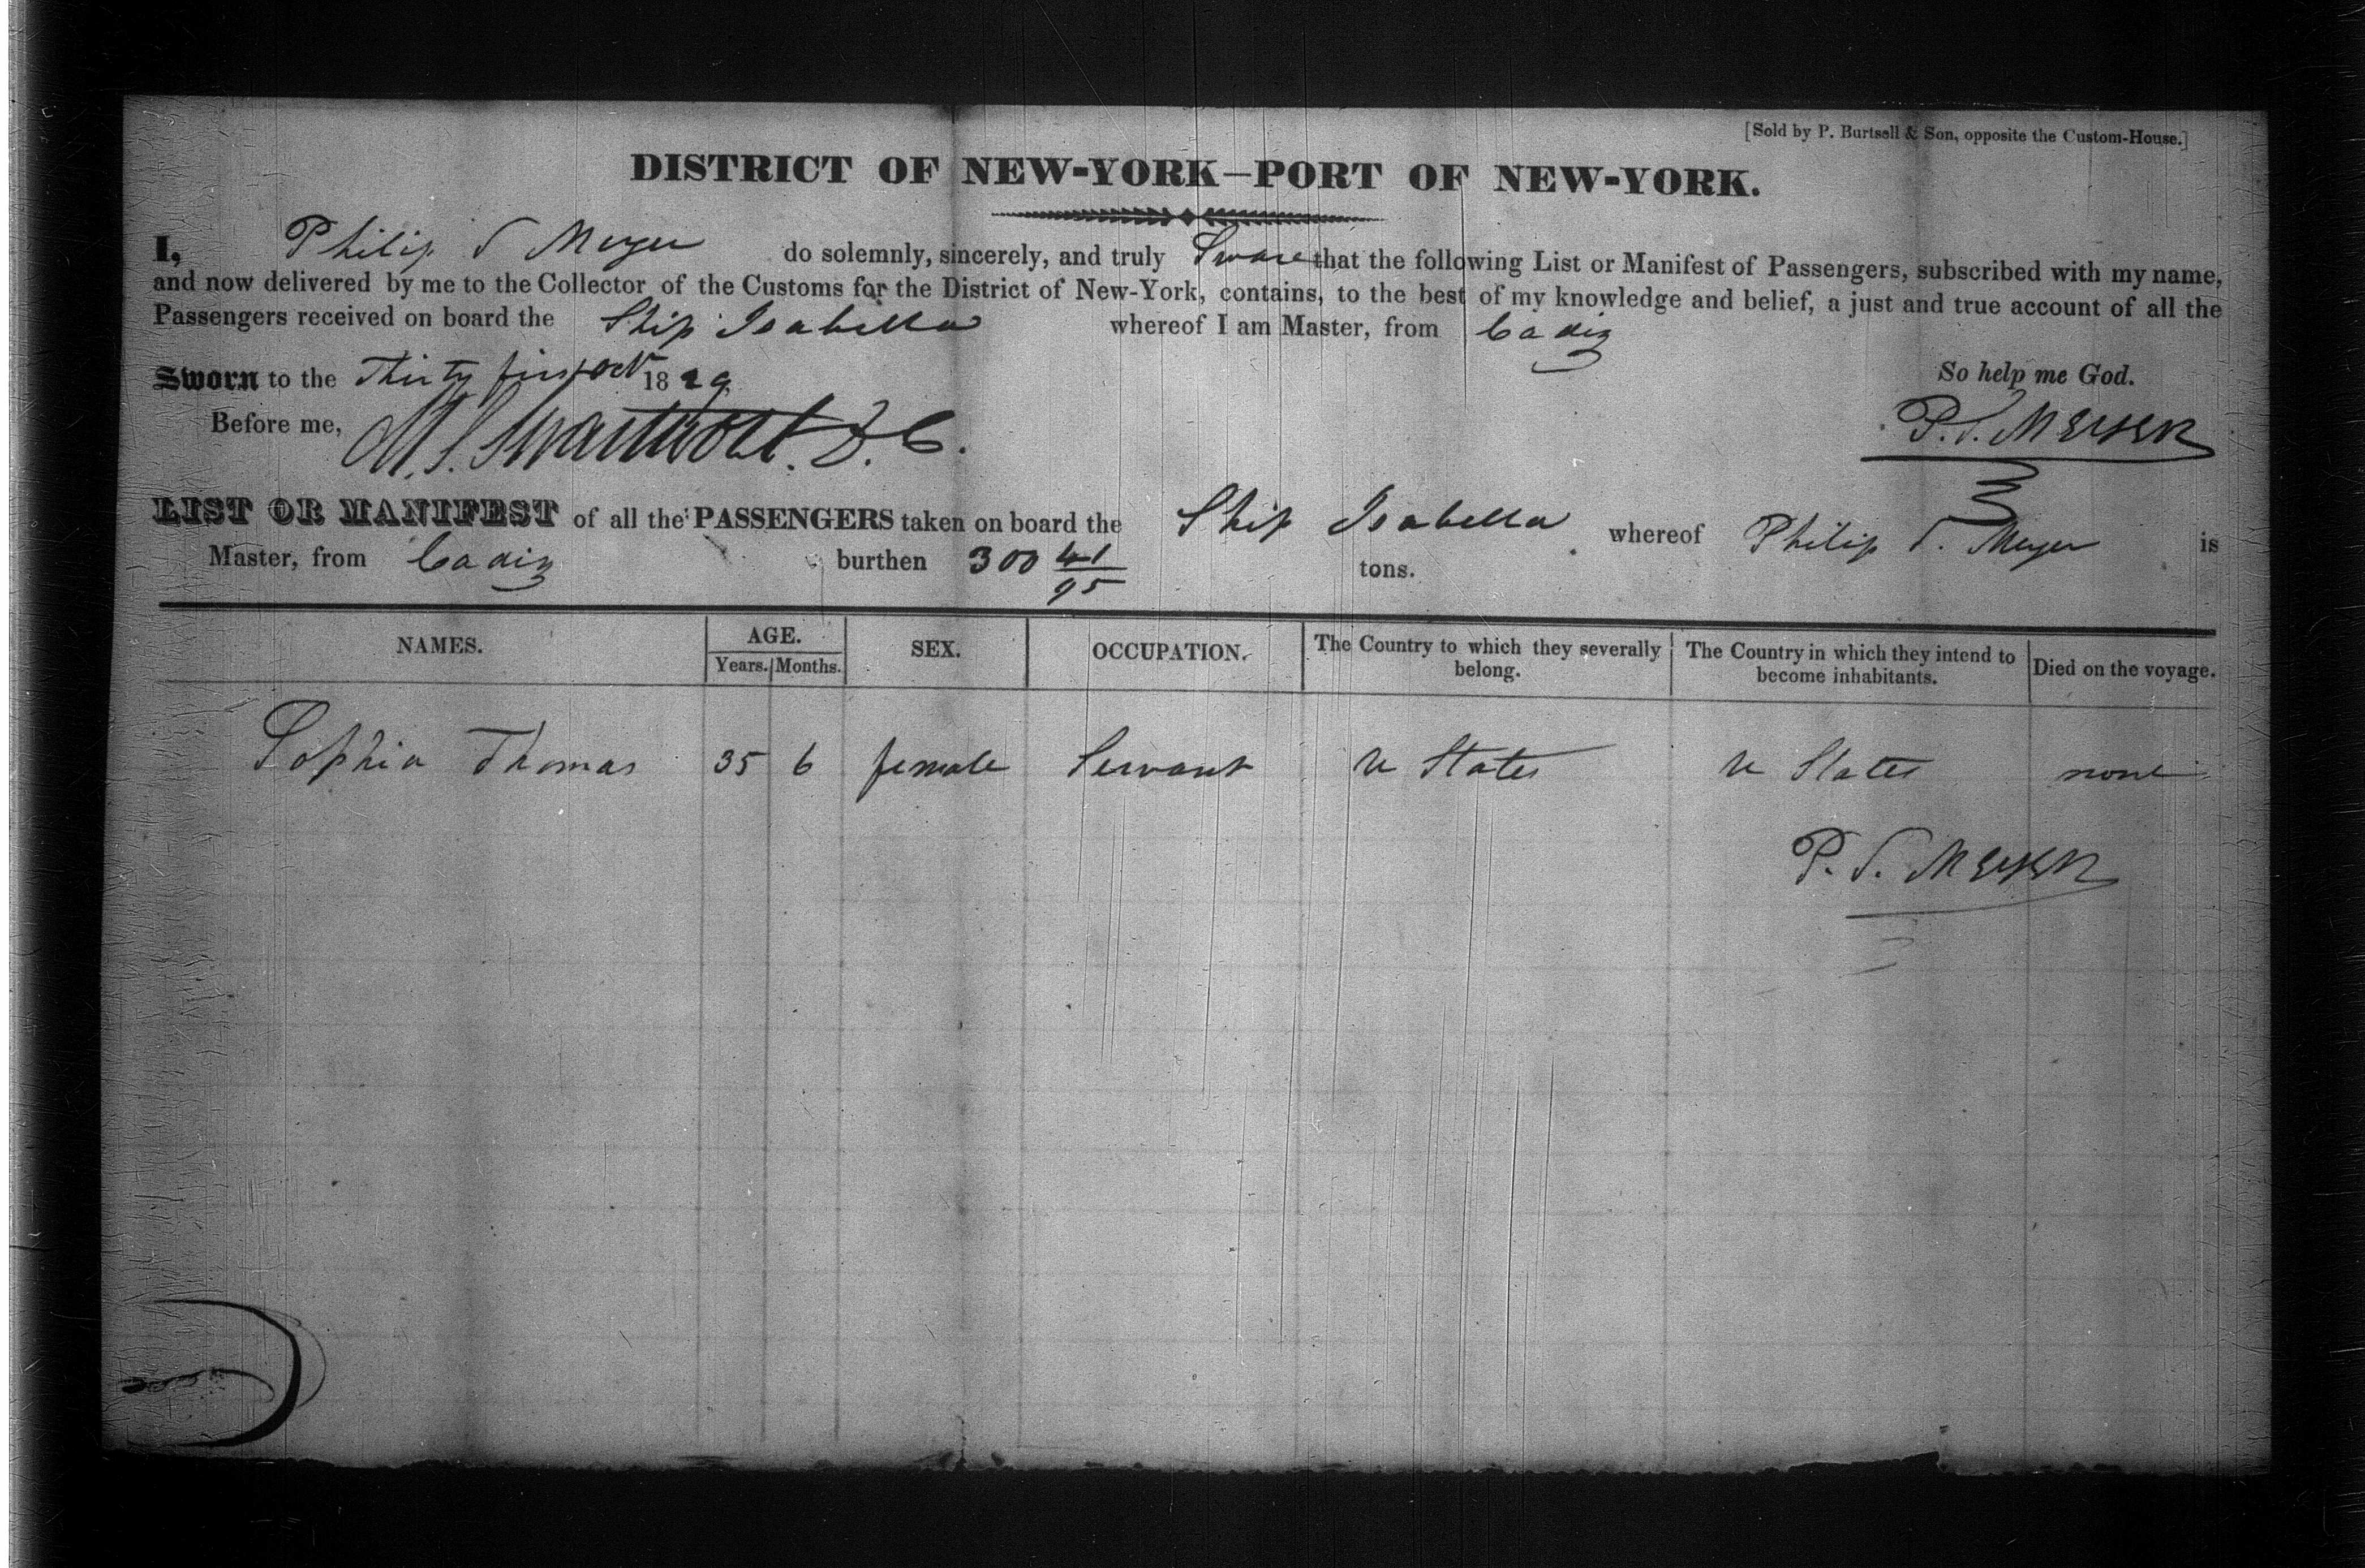 [Sold by P. Burtsell & Son, opposite the Custom-House.]
DISTRICT OF NEW-YORK—PORT OF NEW-YORK.
I, Philip S Meyer do solemnly, sincerely, and truly Sware that the following List or Manifest of Passengers, subscribed with my name,
and now delivered by me to the Collector of the Customs for the District of New-York, contains, to the best of my knowledge and belief, a just and true account of all the
Passengers received on board the Ship Isabella whereof I am Master, from Cadiz
Sworn to the Thirty first Oct 1829 So help me God.
Before me, M. S. Swartwout. D. C. P. S. MEYER
LIST OR MANIFEST of all the PASSENGERS taken on board the Ship Isabella whereof Philip S. Meyer is
Master, from Cadiz burthen 300 41/95 tons.
NAMES. AGE. Years. Months. SEX. OCCUPATION. The Country to which they severally belong. The Country in which they intend to become inhabitants. Died on the voyage.
Sophia Thomas 35 6 female Servant U States U States none
P. S. MEYER